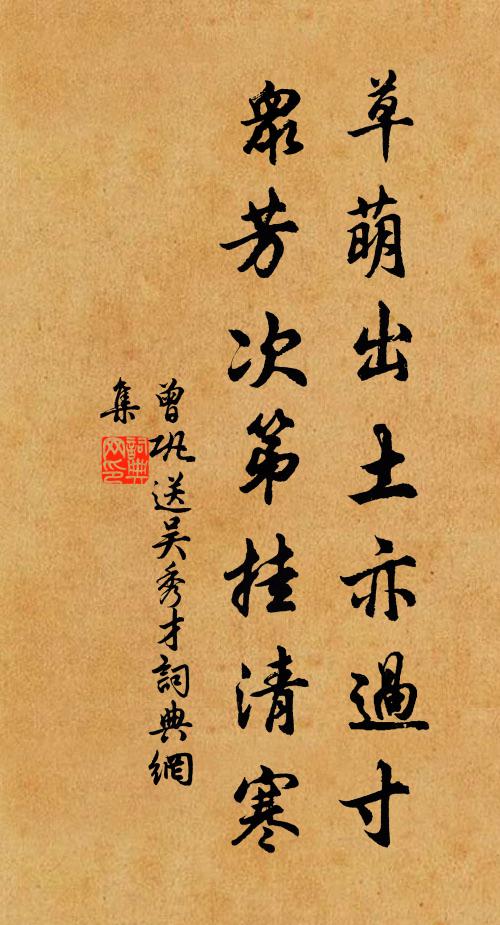 草萌出土亦過寸
眾芳次第挂清寒
曾巩送吴秀才詞典網
集
詞典網印